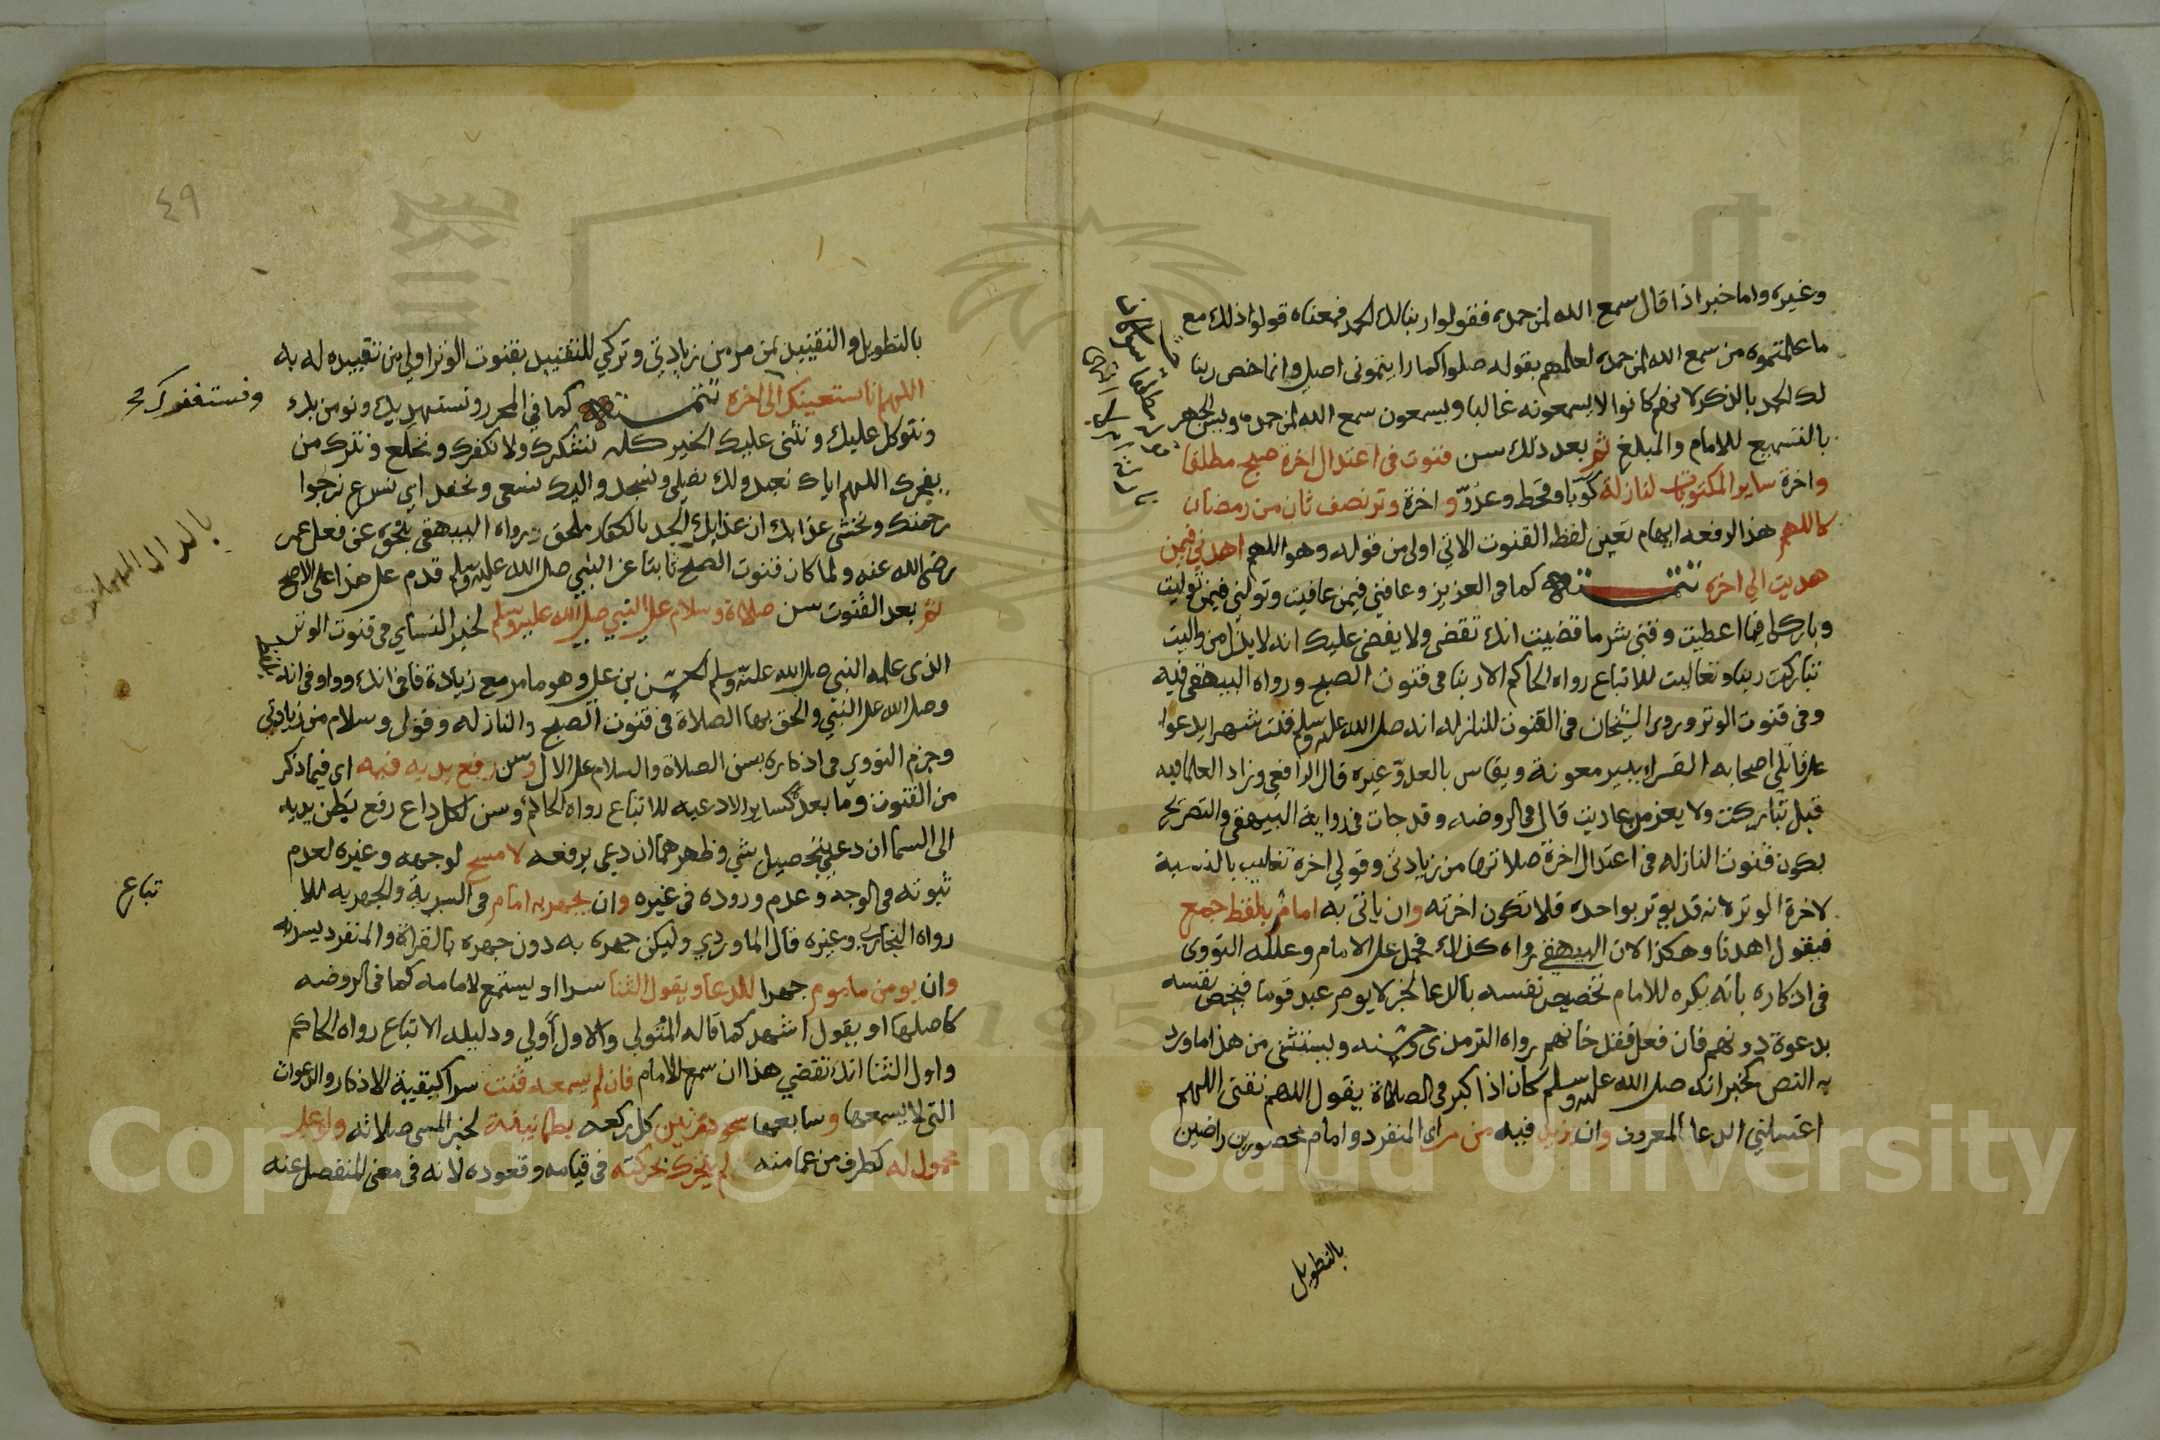 وغيره واما خبر اذا قال سمع الله لمن حمده فقولوا ربنا لك الحمد فمعناه قولوا ذلك مع
ما علمتموه من سمع الله لمن حمده لعلمهم بقوله صلوا كما رايتموني اصلي وانما خص ربنا
لك الحمد بالذكر لانهم كانوا لا يسمعونه غالبا ويسمعون سمع الله لمن حمده ويسن الجهر
بالتسميع للامام والمبلغ ثم بعد ذلك سن قنوت في اعتدال اخرة صبح مطلقا
واخرة ساير المكتوبات لنازلة كوبا وقحط وعدو و اخرة وتر نصف ثان من رمضان
كاللهم هذا لرفعه ايهام تعين لفظ القنوت الاتي اولى من قوله وهو اللهم اهدني فيمن
هديت الي اخره تتمته كما في العزيز وعافني فيمن عافيت وتولني فيمن توليت
وبارك لي فيما اعطيت وقني شر ما قضيت انك تقضى ولا يقضى عليك انه لا يذل من واليت
تباركت ربنا وتعاليت للاتباع رواه الحاكم الا ربنا في قنوت الصبح ورواه البيهقي فيه
وفي قنوت الوتر وروى الشيخان في القنوت للنازله انه صلى الله عليه وسلم قنت شهرا يدعوا
على قاتلي اصحابه القراء ببير معونة ويقاس بالعدو غيره قال الرافعي وزاد العلما فيه
قبل تباركت ولا يعز من عاديت قال في الروضه وقد جات في رواية البيهقي والتصريح
بكون قنوت النازله في اعتدال اخرة صلاتها من زيادتي وقولي اخره تغليب بالنسبة
لاخرة الوتر لانه قد يوتر بواحده فلا تكون اخرته وان ياتى به امام بلفظ جمع
فيقول اهدنا وهكذا لان البيهقي رواه كذلك فحمل على الامام وعلله النووى
في اذكاره بانه يكره للامام تخصيص نفسه بالدعا لخبر لا يوم عبد قوما فيخص نفسه
بدعوة دونهم فان فعل فقد خانهم رواه الترمذى وحسنه ويستثنى من هذا ما ورد
به النص كخبر انه صلى الله عليه وسلم كان اذا كبر في الصلاة يقول اللهم نقنى اللهم
اغسلني الدعا المعروف وان يزيد فيه من مر اى المنفرد وامام محصورين راضين
بالتطويل
٤٩
بالتطويل والتقييد بمن مر من زيادتي وتركي للتقييد بقنوت الوتر اولى من تقييده له به
اللهم انا نستعينك الى اخره تتمته كما في المحرر ونستهديك ونومن بك
ونستغفرك صح
ونتوكل عليك ونثنى عليك الخير كله نشكرك ولا نكفرك ونخلع ونترك من
يفجرك اللهم اياك نعبد ولك نصلي ونسجد واليك نسعى ونحفد اي نسرع نرجوا
بالدال المهملة
رحمتك ونخشى عذابك ان عذابك الجد بالكفار ملحق ورواه البيهقي بنحوه عن فعل عمر
رضي الله عنه ولما كان قنوت الصبح ثابتا عن النبي صلى الله عليه وسلم قدم على هذا على الاصح
ثم بعد القنوت سن صلاة وسلام على النبي صلى الله عليه وسلم لخبر النساي في قنوت الوتر
الذي علمه النبي صلى الله عليه وسلم الحسن بن علي وهو ما مر مع زيادة فا في انك وواو في انه
وصلى الله على النبي والحق بها الصلاة في قنوت الصبح والنازله وقولي وسلام من زيادتي
وجزم النووي في اذكاره بسن الصلاة والسلام على الال وسن رفع يديه فيه اي فيما ذكر
من القنوت وما بعده كساير الادعيه للاتباع رواه الحاكم وسن لكل داع رفع بطن يديه
الى السما ان دعى بتحصيل شي وظهرهما ان دعى برفعه لا مسح لوجهه وغيره لعدم
ثبوته في الوجه وعدم وروده في غيره وان يجهر به امام في السرية والجهريه للا
تباع
رواه البخاري وغيره قال الماوردي وليكن جهره به دون جهره بالقراة والمنفرد يسر به
وان يومن ماموم جهرا للدعا ويقول الثنا سرا او يستمع لامامه كما في الروضه
كاصلها او يقول اشهد كما قاله المتولي والاول اولي ودليله الاتباع رواه الحاكم
واول الثنا انك تقضي هذا ان سمع الامام فان لم يسمعه قنت سرا كبقية الاذكار والدعوات
التي لا يسمعها وسابعها سجود مرتين كل ركعه بطمانينة لخبر المسى صلاته ولو على
محمول له كطرف من عمامته لم يتحرك بحركته في قيامه وقعوده لانه في معنى المنفصل عنه
Copyright © King Saud University